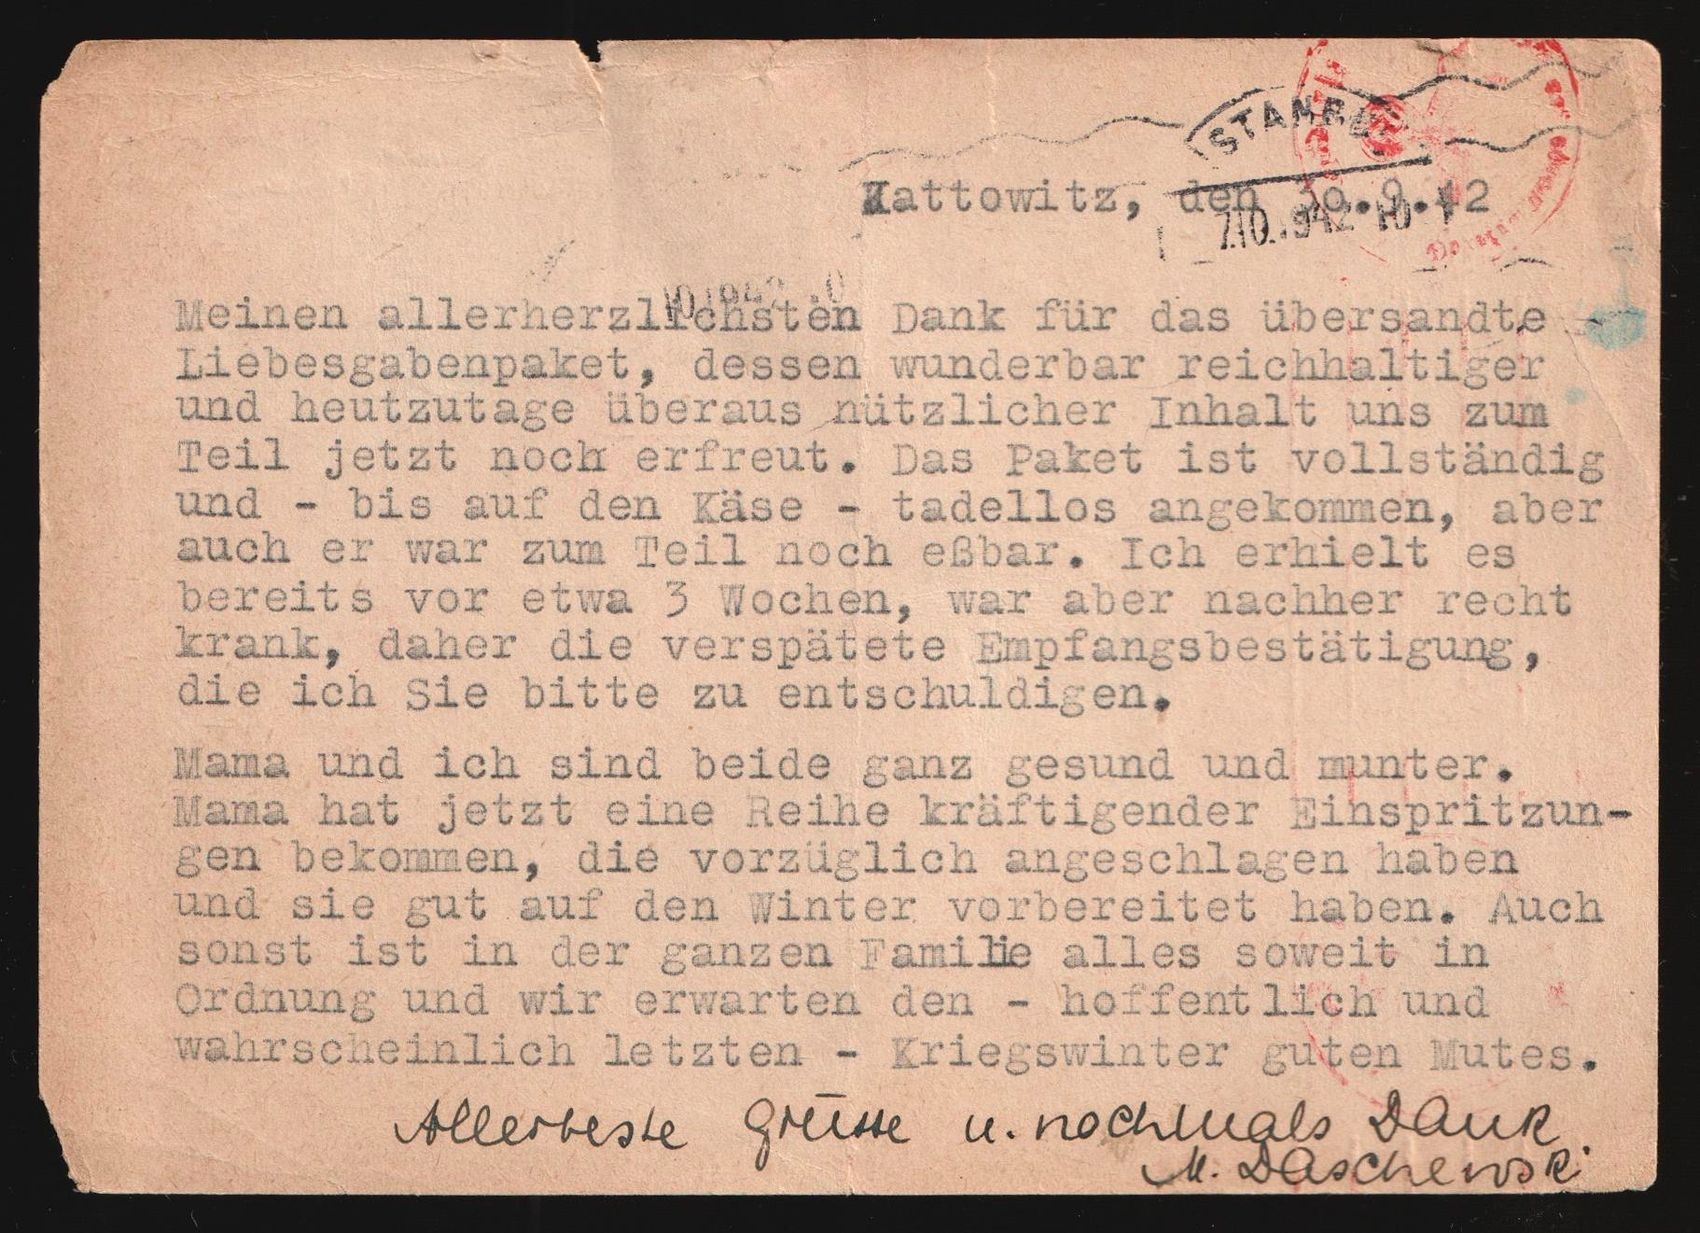 STANBU
Kattowitz, den 30.9.42
7.10.1942 10
10.1942 .0
Meinen allerherzlichsten Dank für das übersandte
Liebesgabenpaket, dessen wunderbar reichhaltiger
und heutzutage überaus nützlicher Inhalt uns zum
Teil jetzt noch erfreut. Das Paket ist vollständig
und - bis auf den Käse - tadellos angekommen, aber
auch er war zum Teil noch eßbar. Ich erhielt es
bereits vor etwa 3 Wochen, war aber nachher recht
krank, daher die verspätete Empfangsbestätigung,
die ich Sie bitte zu entschuldigen.
Mama und ich sind beide ganz gesund und munter.
Mama hat jetzt eine Reihe kräftigender Einspritzun-
gen bekommen, die vorzüglich angeschlagen haben
und sie gut auf den Winter vorbereitet haben. Auch
sonst ist in der ganzen Familie alles soweit in
Ordnung und wir erwarten den - hoffentlich und
wahrscheinlich letzten - Kriegswinter guten Mutes.
Allerbeste Grüsse u. nochmals Dank.
M. Daschewski